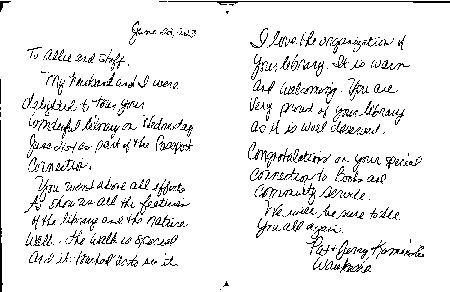 June 23, 2023
To Allie and staff.
My husband and I were
delighted to tour your
wonderful library on Wednesday
June 21st as part of the Passport
Connection.
You went above all efforts
to show us all the features
of the library and the nature
Walk. The walk is special
and it
I love the organization of
your library. It is warm
and welcoming. You are
very proud of your library
as it is well deserved.
Congratulations on your special
connection to books and
community service.
We will be sure to see
you all again.
Pat & Gerry
Waukesha